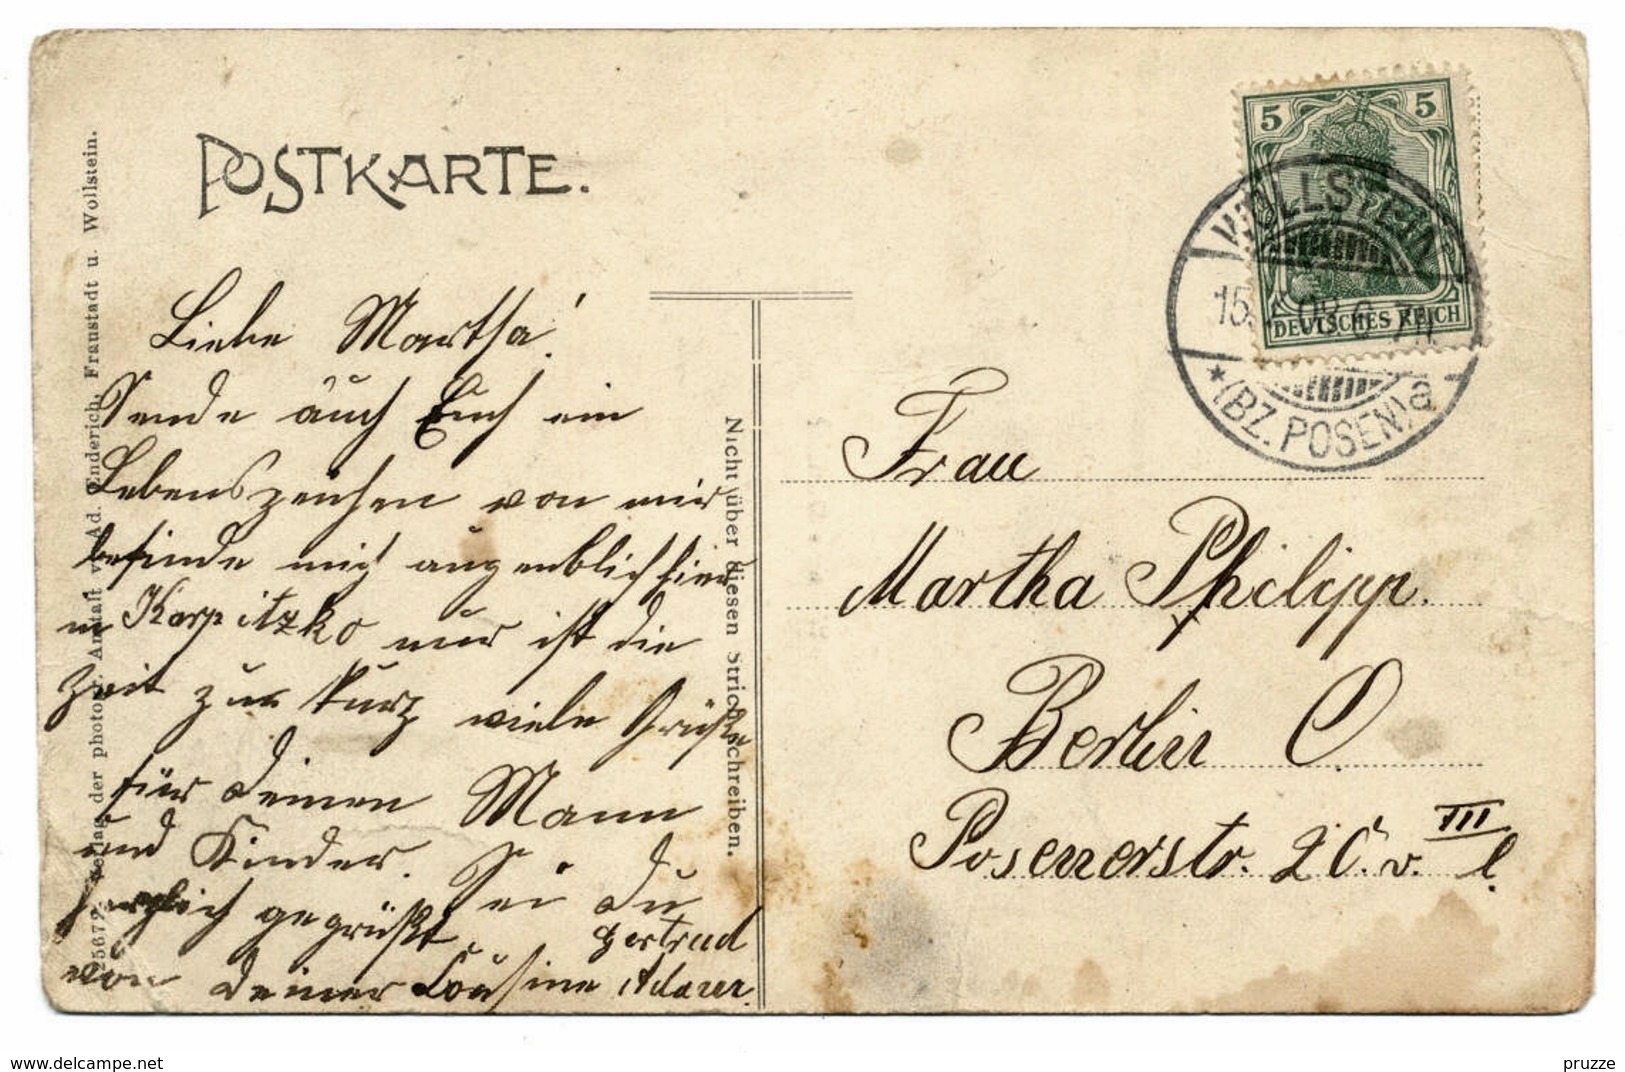 POSTKARTE.
Liebe Martha!
Sende auch Euch ein
Lebenszeichen von mir
befinde mich augenblich hier
in Karpitzko nur ist die
Zeit zur kurz viele Grüße
für Deinen Mann
und Kinder. Sei Du
herzlich gegrüßt
von Deiner Cousine Gertrud
Adam
25679 Verlag der photogr. Anstalt v. Ad. Enderich, Fraustadt u. Wollstein.
Nicht über diesen Strich schreiben.
5 5
DEUTSCHES REICH
WOLLSTEIN
15. 08
* (BZ. POSEN) a
Frau
Martha Philipp.
Berlin O.
Posenerstr. v. III l.
www.delcampe.net
pruzze